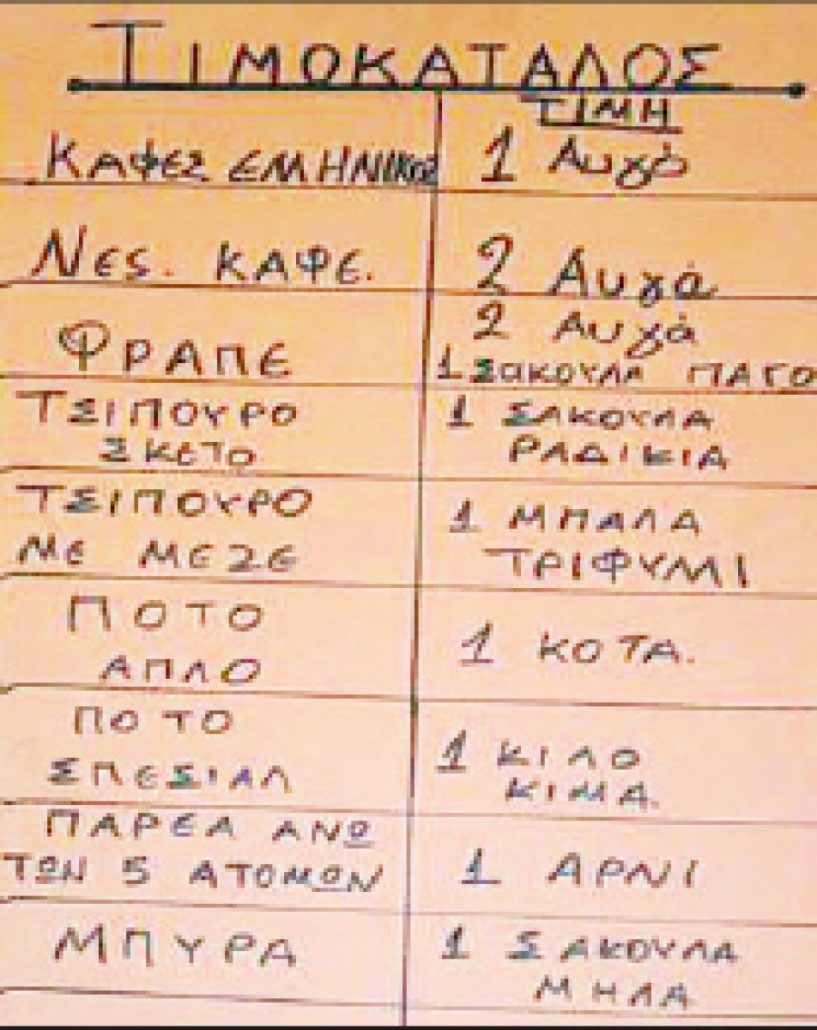 ΤΙΜΟΚΑΤΑΛΟΣ
ΤΙΜΗ
ΚΑΦΕΣ ΕΛΛΗΝΙΚΟΣ 1 Αυγό
ΝΕς. ΚΑΦΕ. 2 Αυγά
ΦΡΑΠΕ 2 Αυγά
1 ΣαΚΟΥΛΑ ΠΑΓΟ
ΤΣΙΠΟΥΡΟ 1 ΣΑΚΟΥΛΑ
ΣΚΕΤΟ ΡΑΔΙΚΙΑ
ΤΣΙΠΟΥΡΟ 1 ΜΠΑΛΑ
ΜΕ ΜΕΖΕ ΤΡΙΦΥΛΛΙ
ΠΟΤΟ
ΑΠΛΟ 1 ΚΟΤΑ.
ΠΟΤΟ 1 ΚΙΛΟ
ΣΠΕΣΙΑΛ ΚΙΜΑ.
ΠΑΡΕΑ ΑΝΩ
ΤΩΝ 5 ΑΤΟΜΩΝ 1 ΑΡΝΙ
ΜΠΥΡΑ 1 ΣΑΚΟΥΛΑ
ΜΗΛΑ